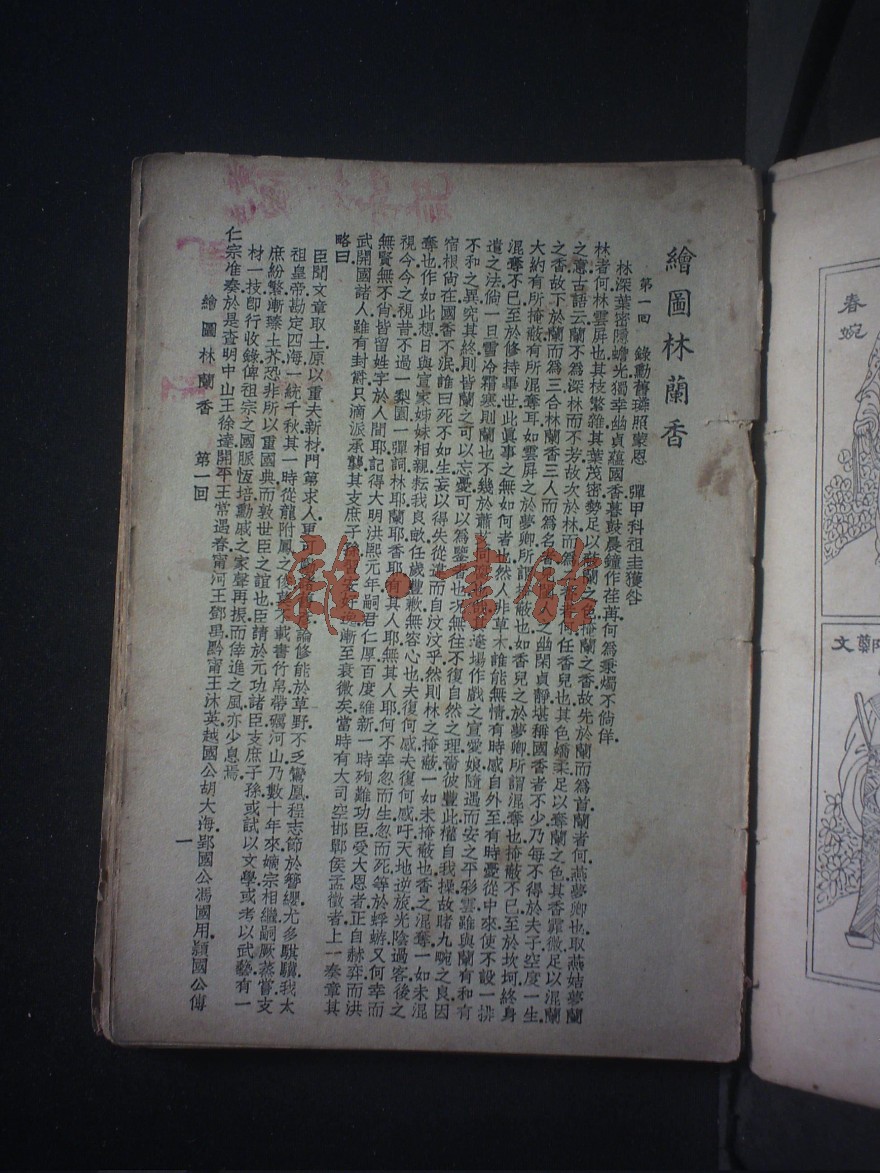 繪圖林蘭香
第一回　錄勳舊璘照蒙恩　彈甲科祖圭獲咎
林深葉密隱蟾光獨幸幽貞蘊國香暮鼓晨鐘作荏苒何爲秉燭不倘佯
林者何林雲屏也其枝繁維其葉茂密勢足以蔽蘭之色掩蘭之香故先於蘭而爲首蘭者何燕夢卿也取燕姞夢蘭
之意古語云蘭不爲深林而不芳故次於林而爲二香者何任香兒也其色嬌柔足以奪蘭之色其香霏微足以混蘭
之香故下於蘭而爲三合林蘭香三人而爲名者之幽閑貞靜堪稱國香者不少乃每不得於夫子空度一生
大約有所掩蔽有所混奪耳如雲屏之於夢卿所謂掩蔽也如香兒之於夢卿所謂混奪也掩蔽不已至於坎坷終身
混奪不已至於修持畢世此眞事之無如何者也然人非草木誰能無情有時感自外至有時憂從中來使不設一排
遣之法倘一旦雪冷霜寒則蘭也不幾於蕭逢場作戲之宣愛娘隨遇而安之平彩雲雖與蘭有和有
不和之異究其終則皆蘭之可以忘憂可以爲鑒者也況無往不復自然之理嗇彼豐此權自我操故賭九畹之良因
宿根尙在國香不泯誰曰死不如生妄以得失從違而自汶汶乎然則林之掩蔽一如未掩蔽也香之混奪一如未混
奪也作如此想日與宣家姊妹相親耘我良畝任歲豐歉無容心也夫復何感夫復何感吁天地逆旅光陰過客後之
視今今之視昔不過一梨園一彈詞林耶蘭耶香耶有其人耶無其人耶何不幸忽而生忽而死等於蜉蝣又何幸而
無賢無不肖皆留姓字於人間耶記得大明洪熙元年嗣君仁厚百度維新一時殉難功臣受大恩者正自赫弈而洪
武開國諸人雖有封爵只滴派承襲其支庶子孫漸至衰微矣當時有大司空邯鄲侯孟徵者上一奏章其
略曰
臣聞文章取士原以重夫新材門第求人更可論修能於草野不乏鸞凰程志節於簪纓尤多騏驥我太
祖皇帝勘定四海一統千秋其一時從龍附鳳之俊莫不載書竹帛帶礪河山乃數十年來嫡宗相繼嗣厥蒸嘗支
庶紛繁漸臻土芥恐非所以重國典而敦世臣之誼也臣請於元功諸臣支庶子孫或試以文學或考以武藝有一
材一技卽行收錄俾祖宗之國脈恆培勳戚之家聲再振而倖進之風亦少息焉
仁宗准奏於是查明中山王徐達開平王常遇春甯河王鄧愈黔甯王沐英越國公胡大海鄧國公馮國用潁國公傅
繪圖林蘭香　第一回
一
雜·書館
春婉
鄭文